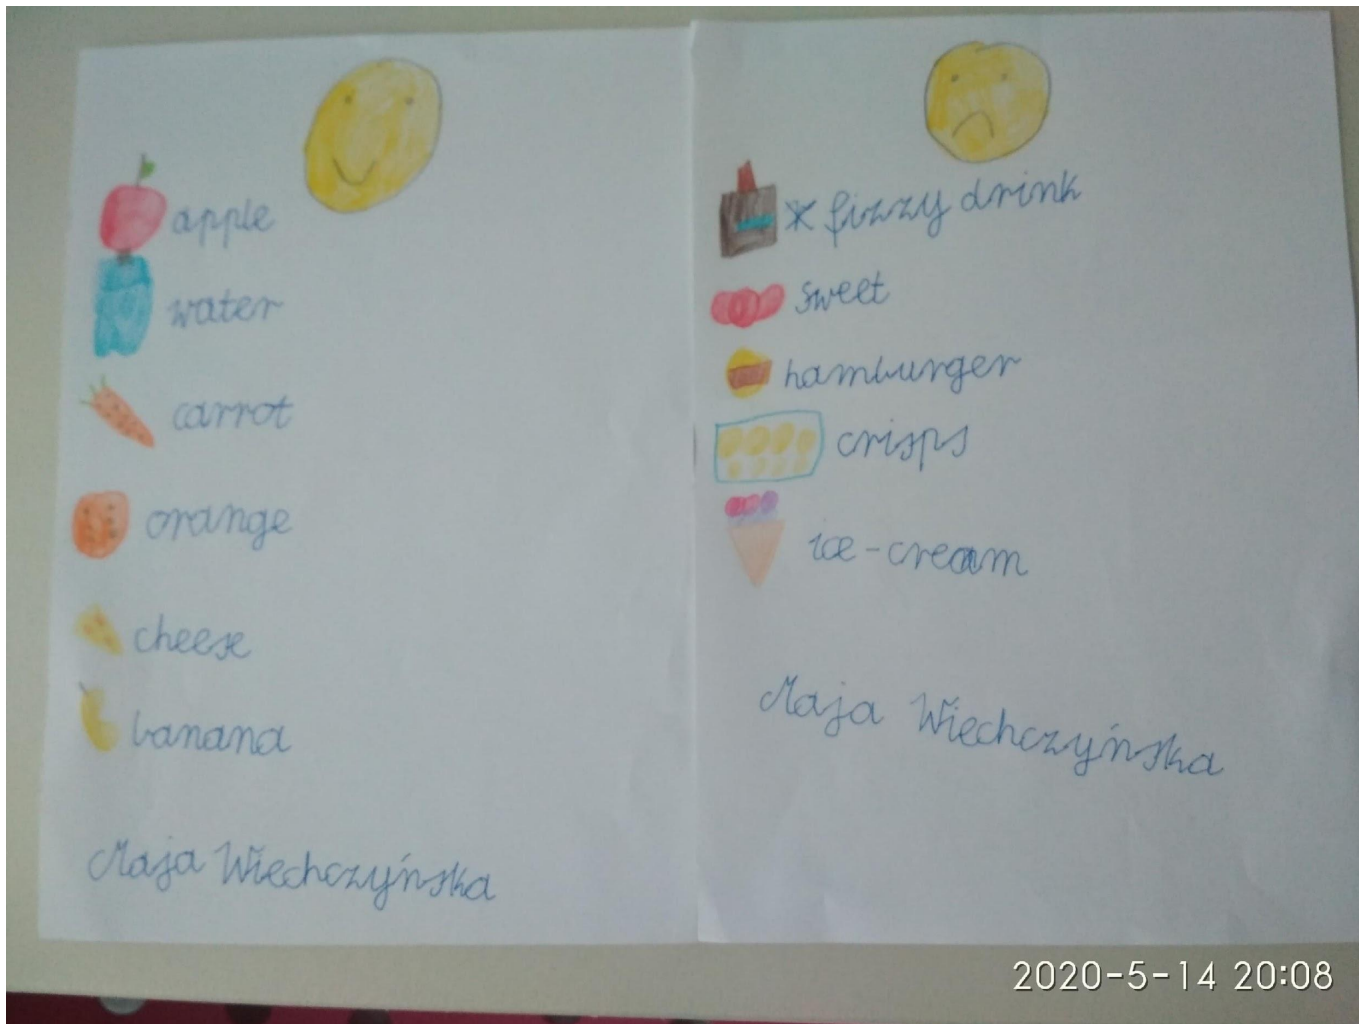 apple
water
carrot
orange
cheese
banana
Maja Wiechczyńska
* fizzy drink
sweet
hamburger
crisps
ice-cream
Maja Wiechczyńska
2020-5-14 20:08